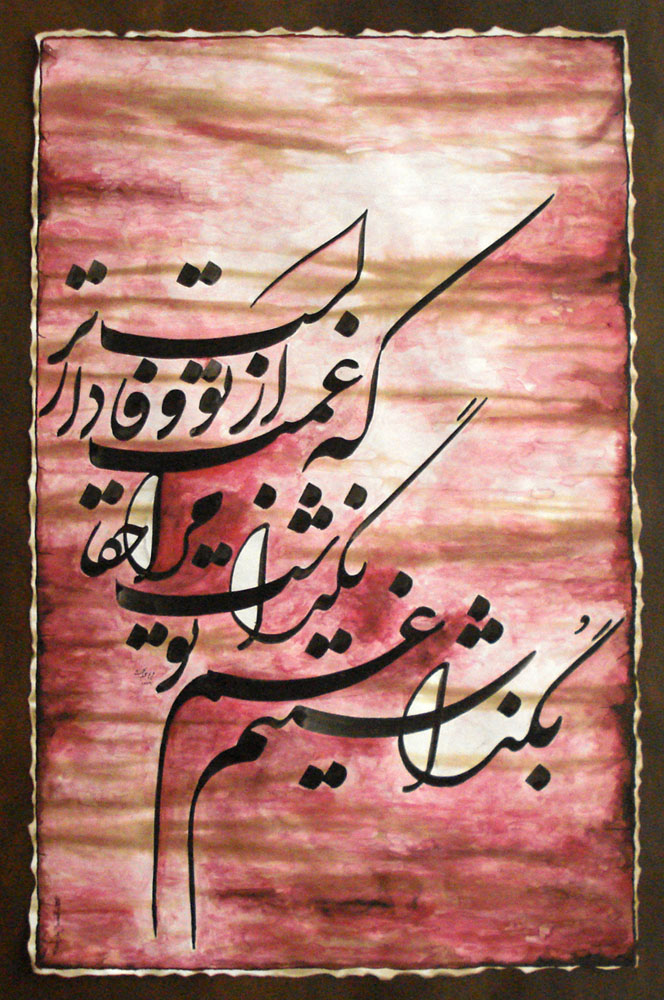 بُگذاشتیم غم تو
نگذاشت مرا حقا
که غمت از تو وفادارتر است